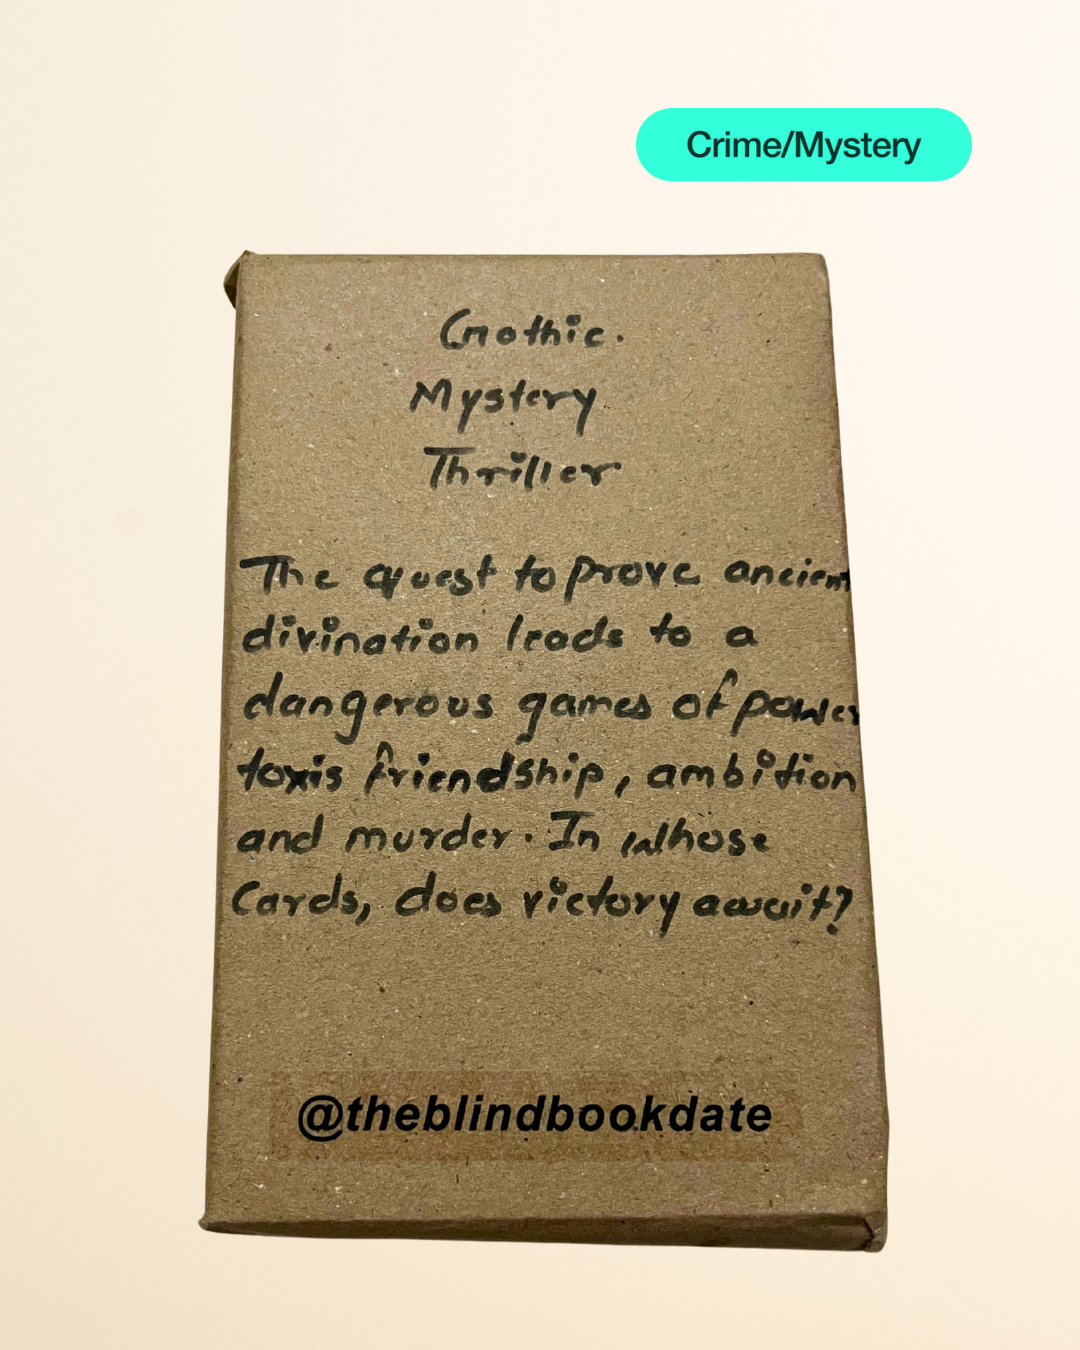 Crime/Mystery
Gothic.
Mystery
Thriller
The quest to prove ancient
divination leads to a
dangerous games of power
toxis friendship, ambition
and murder. In whose
Cards, does victory await?
@theblindbookdate